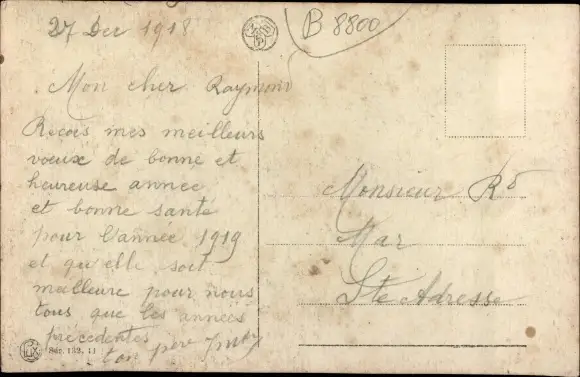 27 Dec 1918
B 8800
Mon cher Raymond
Recois mes meilleurs
voeux de bonne et
heureuse année
et bonne santé
pour l'année 1919
et qu'elle soit
meilleure pour nous
tous que les années
précédentes
ton père
Monsieur Rd
Mar
Ste Adresse
Sér. 132, 11